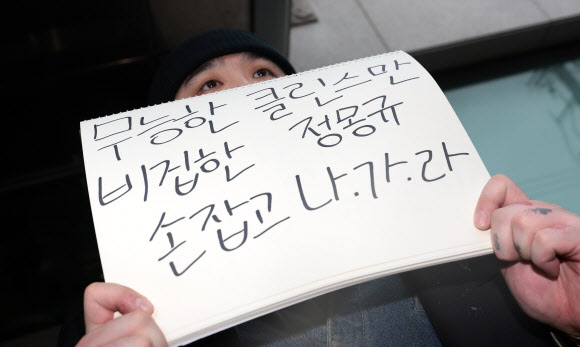 무능한 클린스만
비집한 정몽규
손잡고 나.가.라